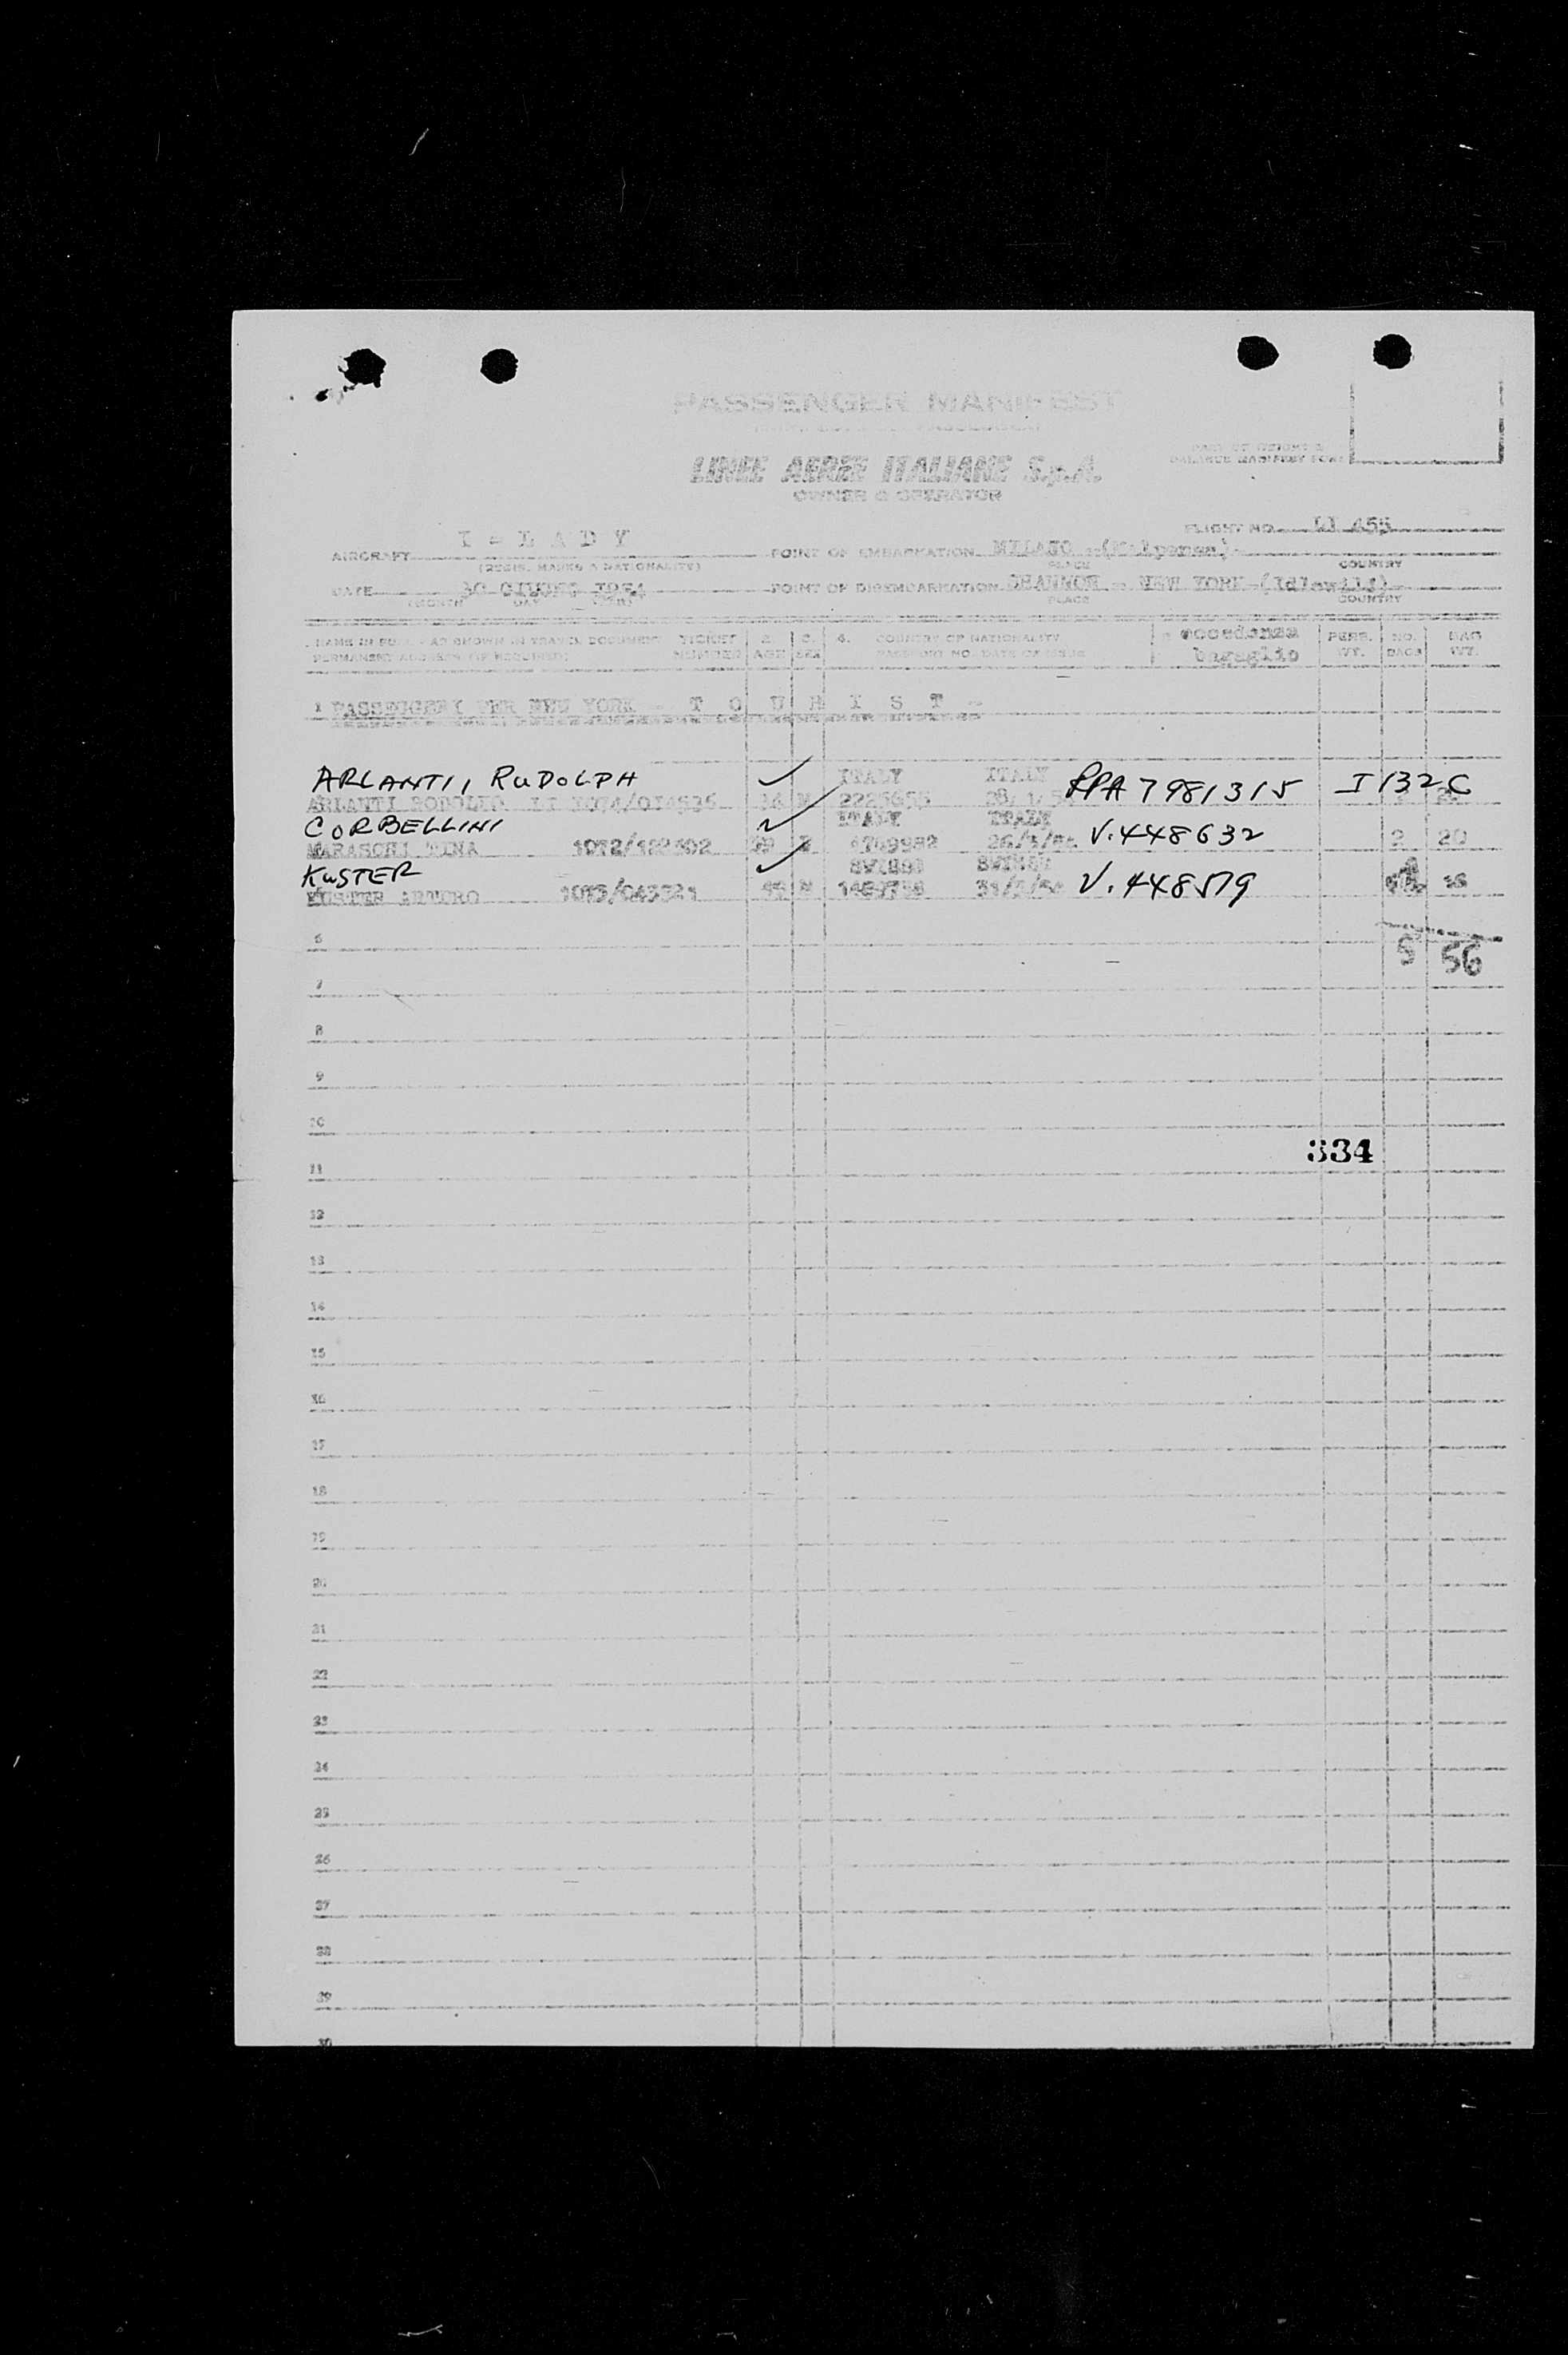 PASSENGER MANIFEST
LINEE AEREE ITALIANE S.p.A.
OWNER & OPERATOR
FLIGHT NO. LI 455
AIRCRAFT I - L A D Y POINT OF EMBARKATION MILANO (Malpensa)
(REGIS. MARKS & NATIONALITY) PLACE COUNTRY
DATE 30 GIUGNO 1954 POINT OF DISEMBARKATION SHANNON - NEW YORK (Idlewild)
(MONTH DAY YEAR) PLACE COUNTRY
NAME IN FULL - AS SHOWN IN TRAVEL DOCUMENT TICKET 2. 3. 4. COUNTRY OF NATIONALITY eccedenza PERS. NO. BAG
PERMANENT ADDRESS (IF REQUIRED) NUMBER AGE SEX PASSPORT NO. DATE OF ISSUE bagaglio WT. BAGS WT.
1 PASSEGGERI PER NEW YORK - T O U R I S T -
ARLANTI, RUDOLPH ITALY ITALY PPA 7981315 I 132 C
ARLANTI RODOLFO LI 1074/014536 M 2225655
CORBELLINI ITALY ITALY
MARASCHI TINA 1072/ 26/3/54 V.448632 2 20
KUSTER SWISS SWISS
KUSTER ARTURO 1073/043321 M V.448519 16
6 5 56
7
8
9
10
334
11
12
13
14
15
16
17
18
19
20
21
22
23
24
25
26
27
28
29
30